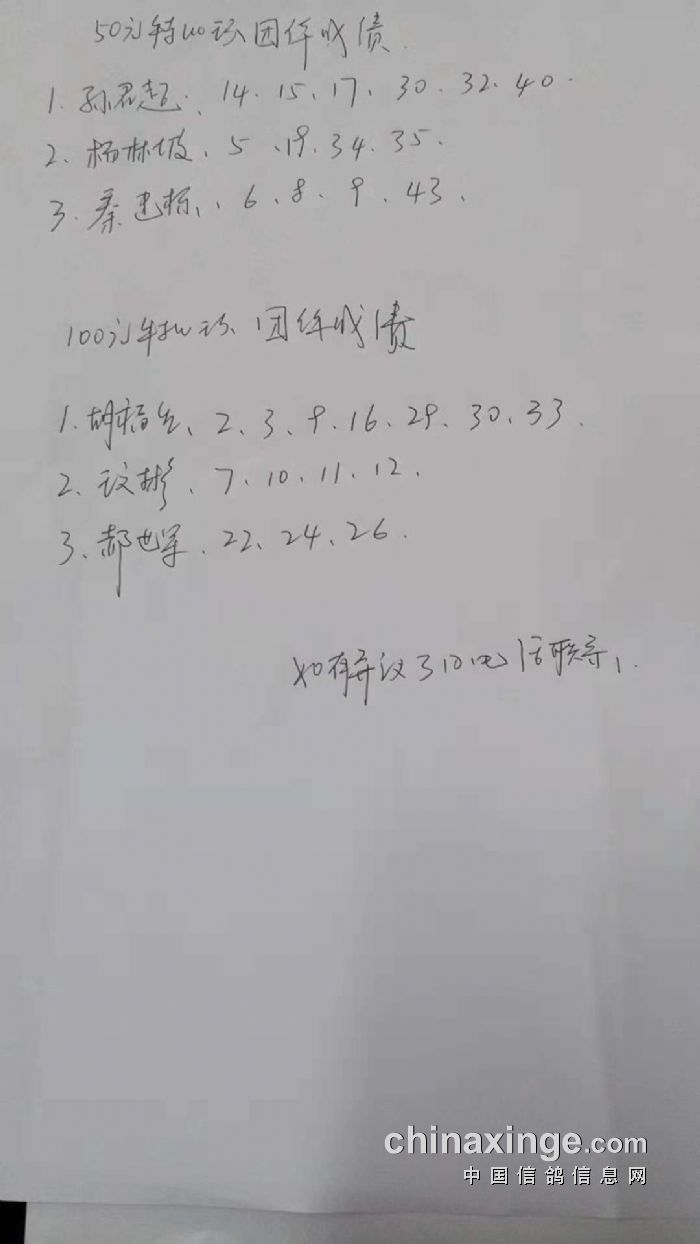 50元特比环团体成绩.
1. 孙君超、14.15、17、30.32.40.
2. 杨林波、5、19.34.35.
3. 秦建标、6、8、9、43.
100元特比环 团体成绩
1. 胡福生、2、3、9.16.29.30.33.
2、文彬、7.10.11.12.
3、郝世军、22、24、26.
如有异议可打电话联系,
chinaxinge.com
中国信鸽信息网